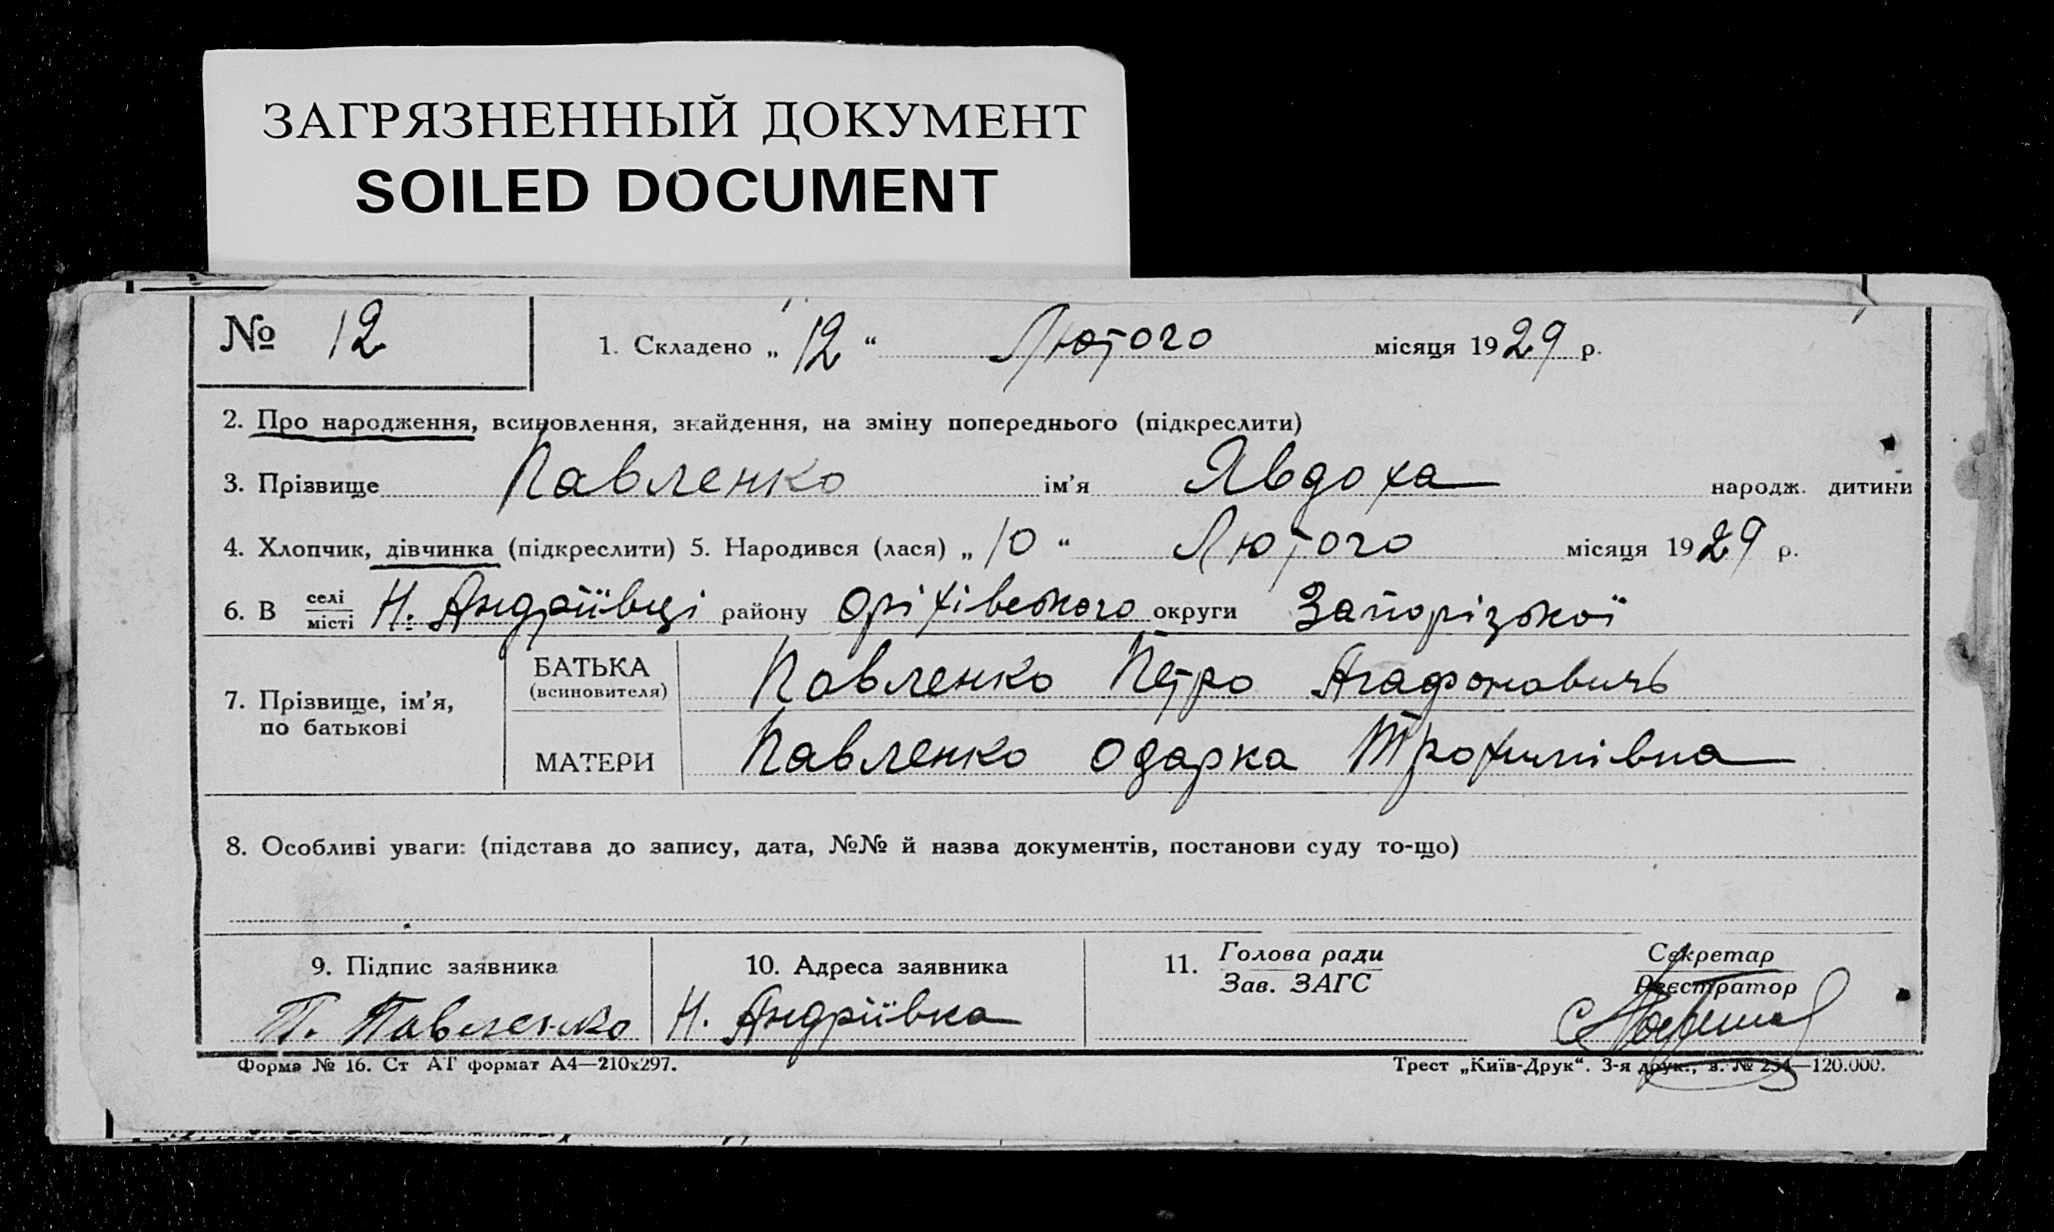 ЗАГРЯЗНЕННЫЙ ДОКУМЕНТ
SOILED DOCUMENT
№ 12
1. Складено „ 12 “ Лютого місяця 1929 р.
2. Про народження, всиновлення, знайдення, на зміну попереднього (підкреслити)
3. Прізвище Павленко ім’я Явдоха народж. дитини
4. Хлопчик, дівчинка (підкреслити) 5. Народився (лася) „ 10 “ Лютого місяця 1929 р.
6. В селі місті Н. Андріївці району Оріхівського округи Запорізької
7. Прізвище, ім’я, по батькові
БАТЬКА (всиновителя) Павленко Петро Агафоновичь
МАТЕРИ Павленко Одарка Трохимівна
8. Особливі уваги: (підстава до запису, дата, №№ й назва документів, постанови суду то-що)
9. Підпис заявника
П. Павленко
10. Адреса заявника
Н. Андріївка
11. Голова ради
Зав. ЗАГС
Секретар
Реєстратор
Форма № 16. Ст АТ формат А4—210х297.
Трест „Київ-Друк“. 3-я друк., з. № 254—120.000.